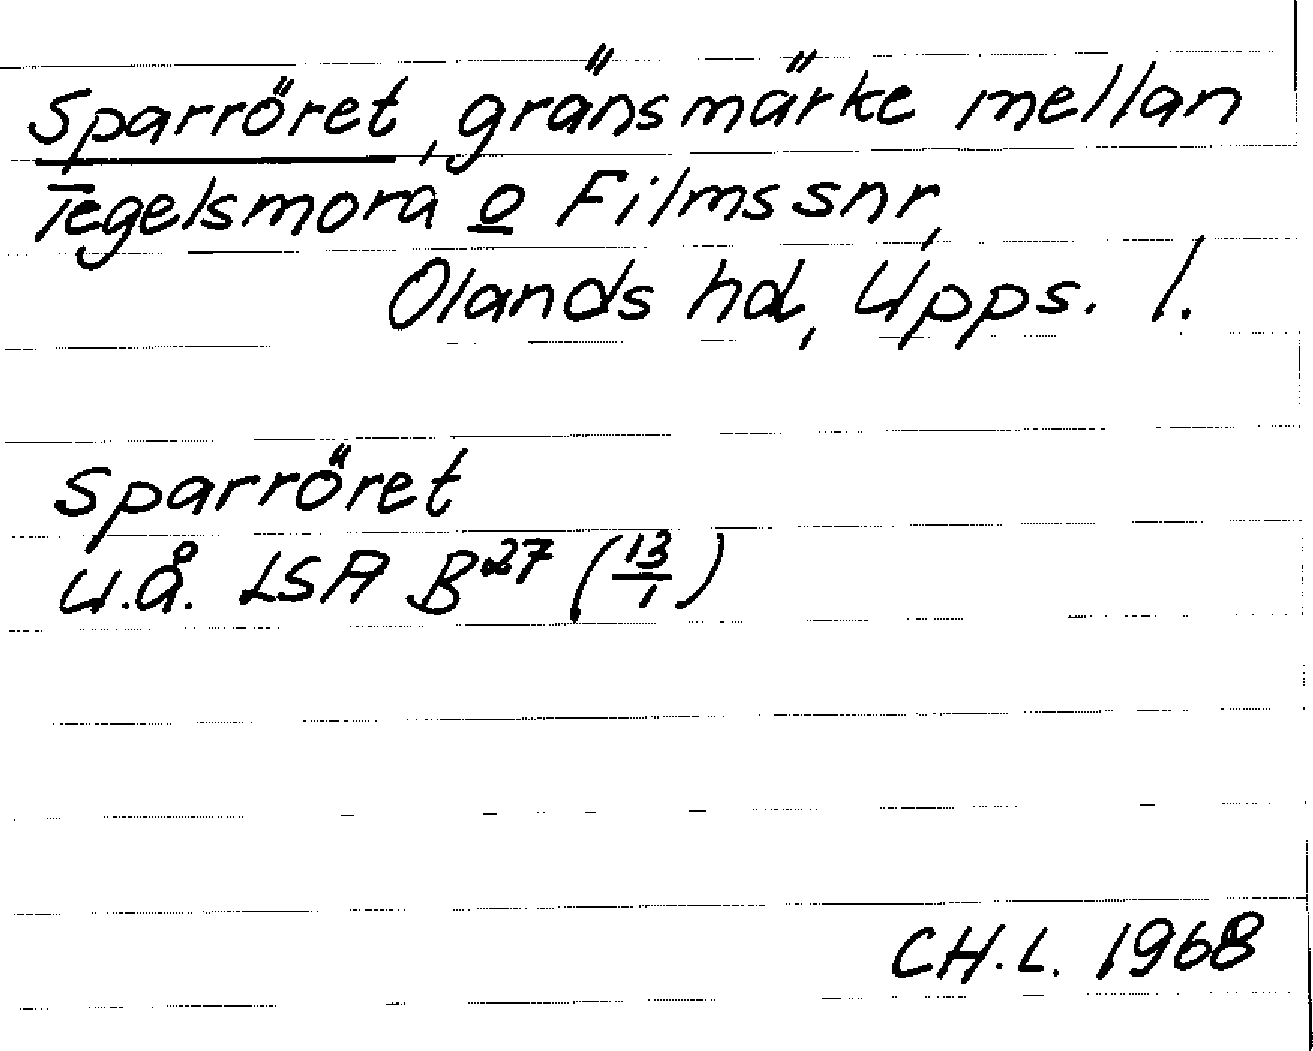 Sparröret, gränsmärke mellan
Tegelsmora o Films snr,
Olands hd, Upps. l.
Sparröret
u.å. LSA B27 (13/1)
CH.L. 1968